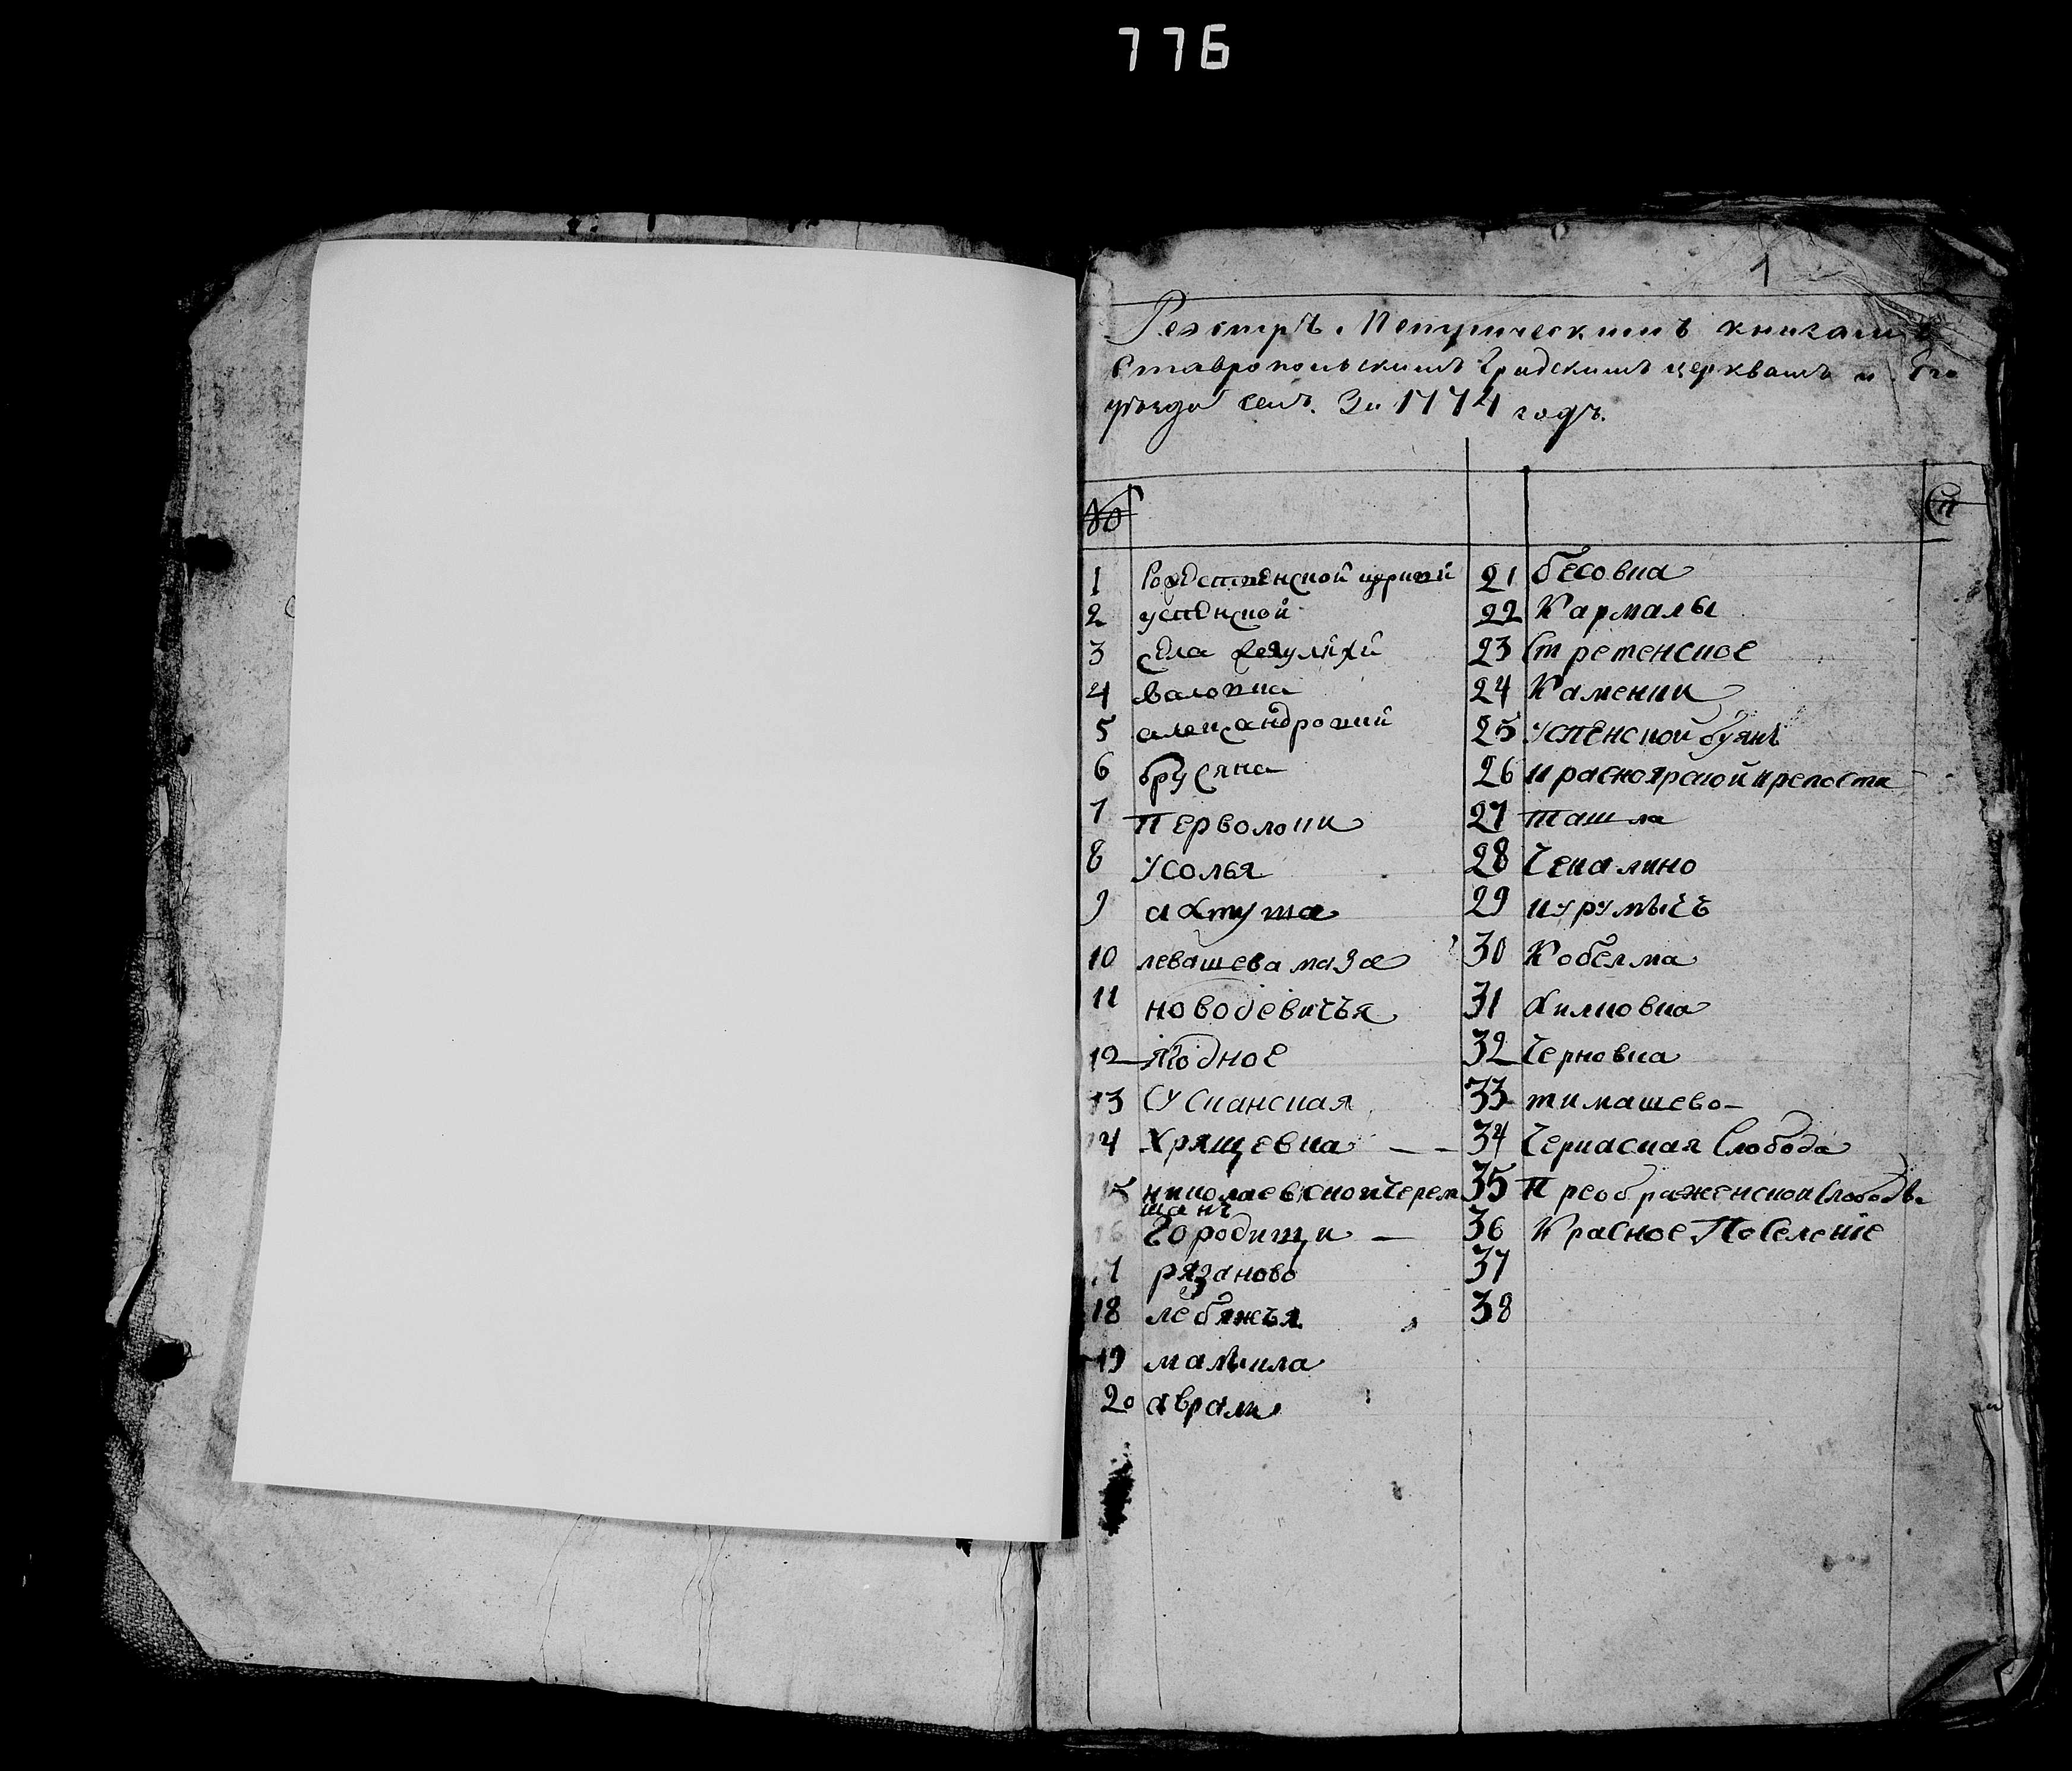 776
1
Реэстръ Метрическимъ книгамъ
Ставропольскимъ Градскимъ церквамъ и Его
уѣзда селъ. За 1774 годъ.
№
1 Рождественской церкви
2 успенской
3 села
4 валовка
5 александровки
6 брусяна
7 перволоки
8 усолья
9 ахтуша
10 левашева маза
11 новодевичья
12 Ягодное
13 Сусканская
14 Хрящевка
15 николаевской черем
шанъ
16 Городищи
17 рязаново
18 лебяжья
19 малыкла
20 аврали
21 бесовка
22 Кармалы
23 Стретенское
24 Каменки
25 Успенской буянъ
26 красноярской крепости
27 ташла
28 Чекалино
29 курумычъ
30 Кобелма
31 хилковка
32 Черновка
33 тимашево
34 Черкаская Слобода
35 Преображенской Слободы
36 Красное Поселеніе
37
38